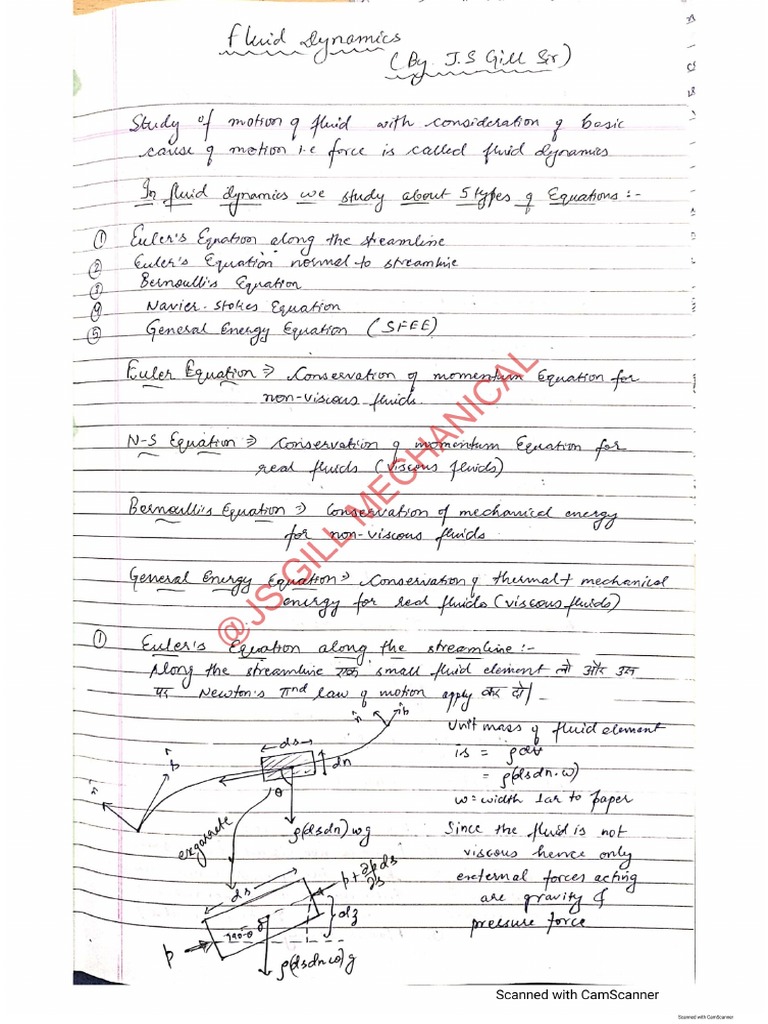 Fluid Dynamics
(By J.S Gill Sir)
Study of motion of fluid with consideration of basic
cause of motion i.e force is called fluid dynamics
In fluid dynamics we study about 5 types of Equations :-
① Euler's Equation along the streamline
② Euler's Equation normal to streamline
③ Bernoulli's Equation
④ Navier-Stokes Equation
⑤ General Energy Equation (SFEE)
Euler Equation ⇒ Conservation of momentum Equation for
non-viscous fluids.
N-S Equation ⇒ Conservation of momentum Equation for
real fluids (viscous fluids)
Bernoulli's Equation ⇒ Conservation of mechanical energy
for non-viscous fluids
General Energy Equation ⇒ Conservation of thermal + mechanical
energy for real fluids (viscous fluids)
@JS GILL MECHANICAL
① Euler's Equation along the streamline :-
Along the streamline एक small fluid element लो और उस
पर Newton's IInd law of motion apply कर दो।
Unit mass of fluid element
is = ρdV
= ρ(dsdn.w)
w = width ⊥ar to paper
Since the fluid is not
viscous hence only
external forces acting
are gravity &
pressure force
n̂
ds
dn
θ
ρ(dsdn)wg
ds
p+∂p/∂s ds
dz
90-θ
p
ρ(dsdnw)g
Scanned with CamScanner
Scanned with CamScanner